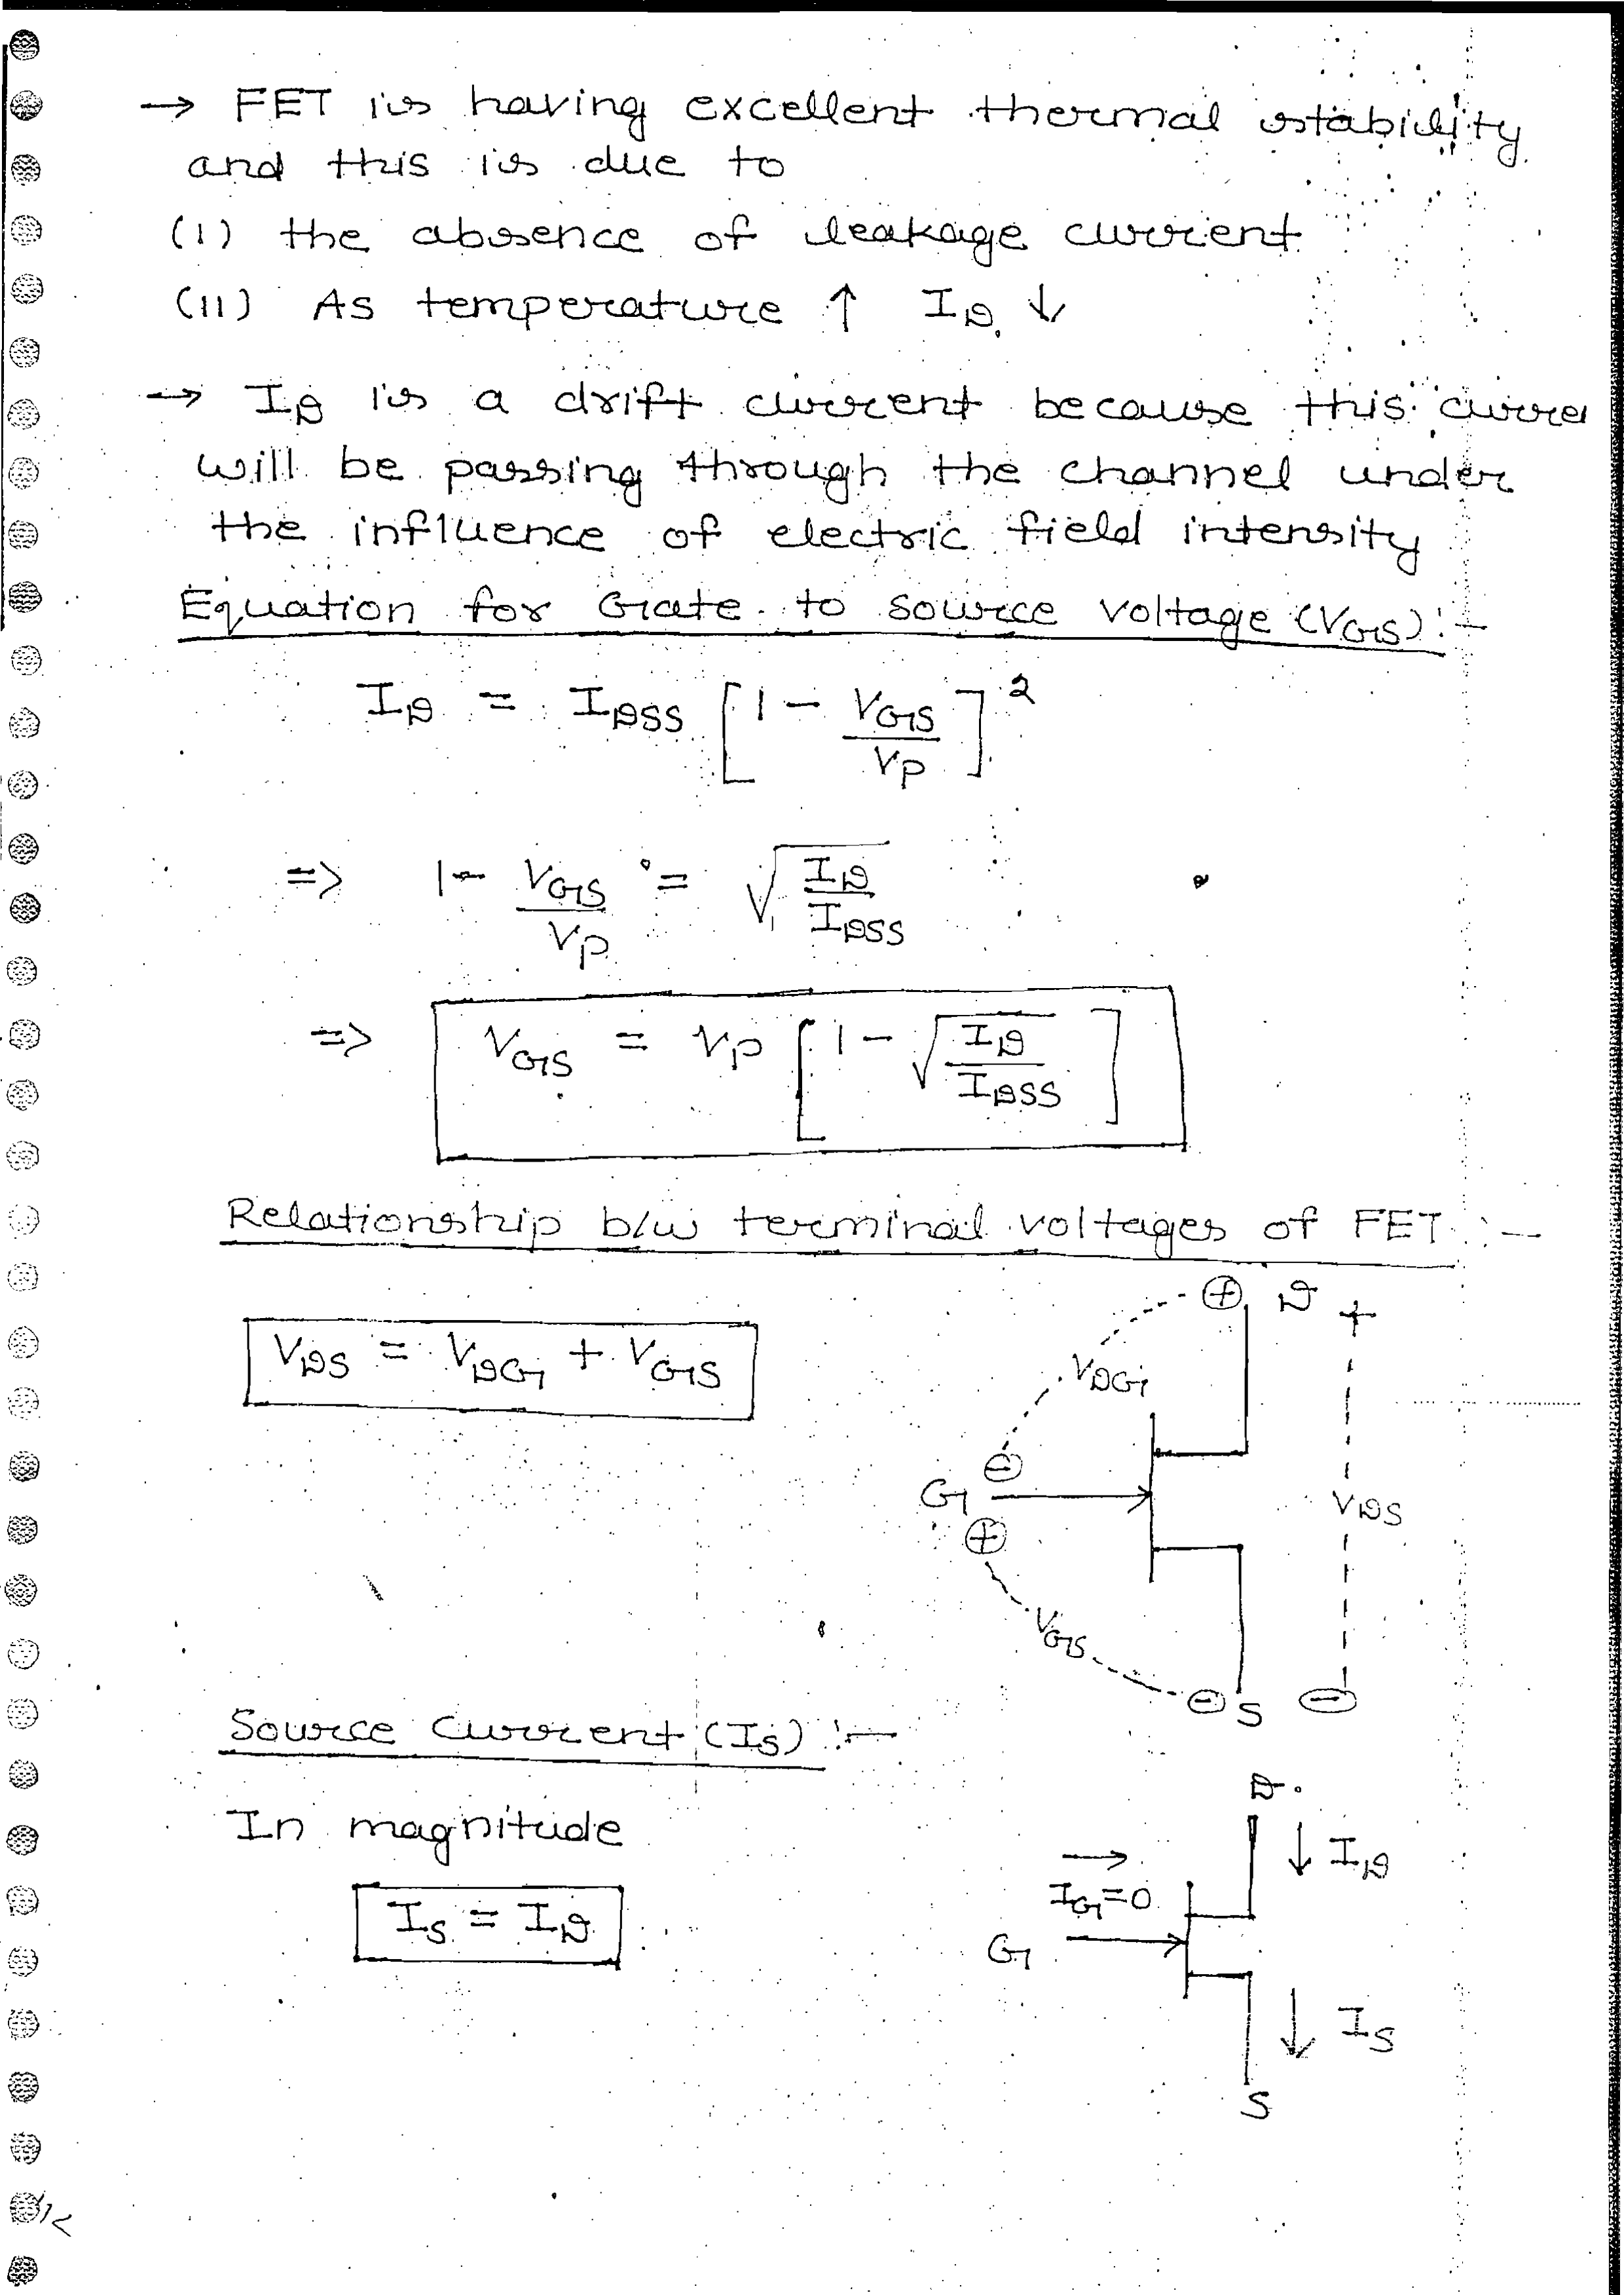 → FET is having excellent thermal stability
and this is due to
(I) the absence of leakage current
(II) As temperature ↑ I_D ↓
→ I_D is a drift current because this curre
will be passing through the channel under
the influence of electric field intensity
Equation for Gate to source voltage (V_GS) :-
I_D = I_DSS [1 - V_GS / V_P]^2
=> 1 - V_GS / V_P = √(I_D / I_DSS)
=> V_GS = V_P [1 - √(I_D / I_DSS)]
Relationship b/w terminal voltages of FET :-
V_DS = V_DG + V_GS
⊕ D +
V_DG
⊖
G
V_DS
⊕
V_GS
⊖ S ⊖
Source current (I_S) :-
In magnitude
I_S = I_D
D
↓ I_D
→
I_G = 0
G
↓ I_S
S